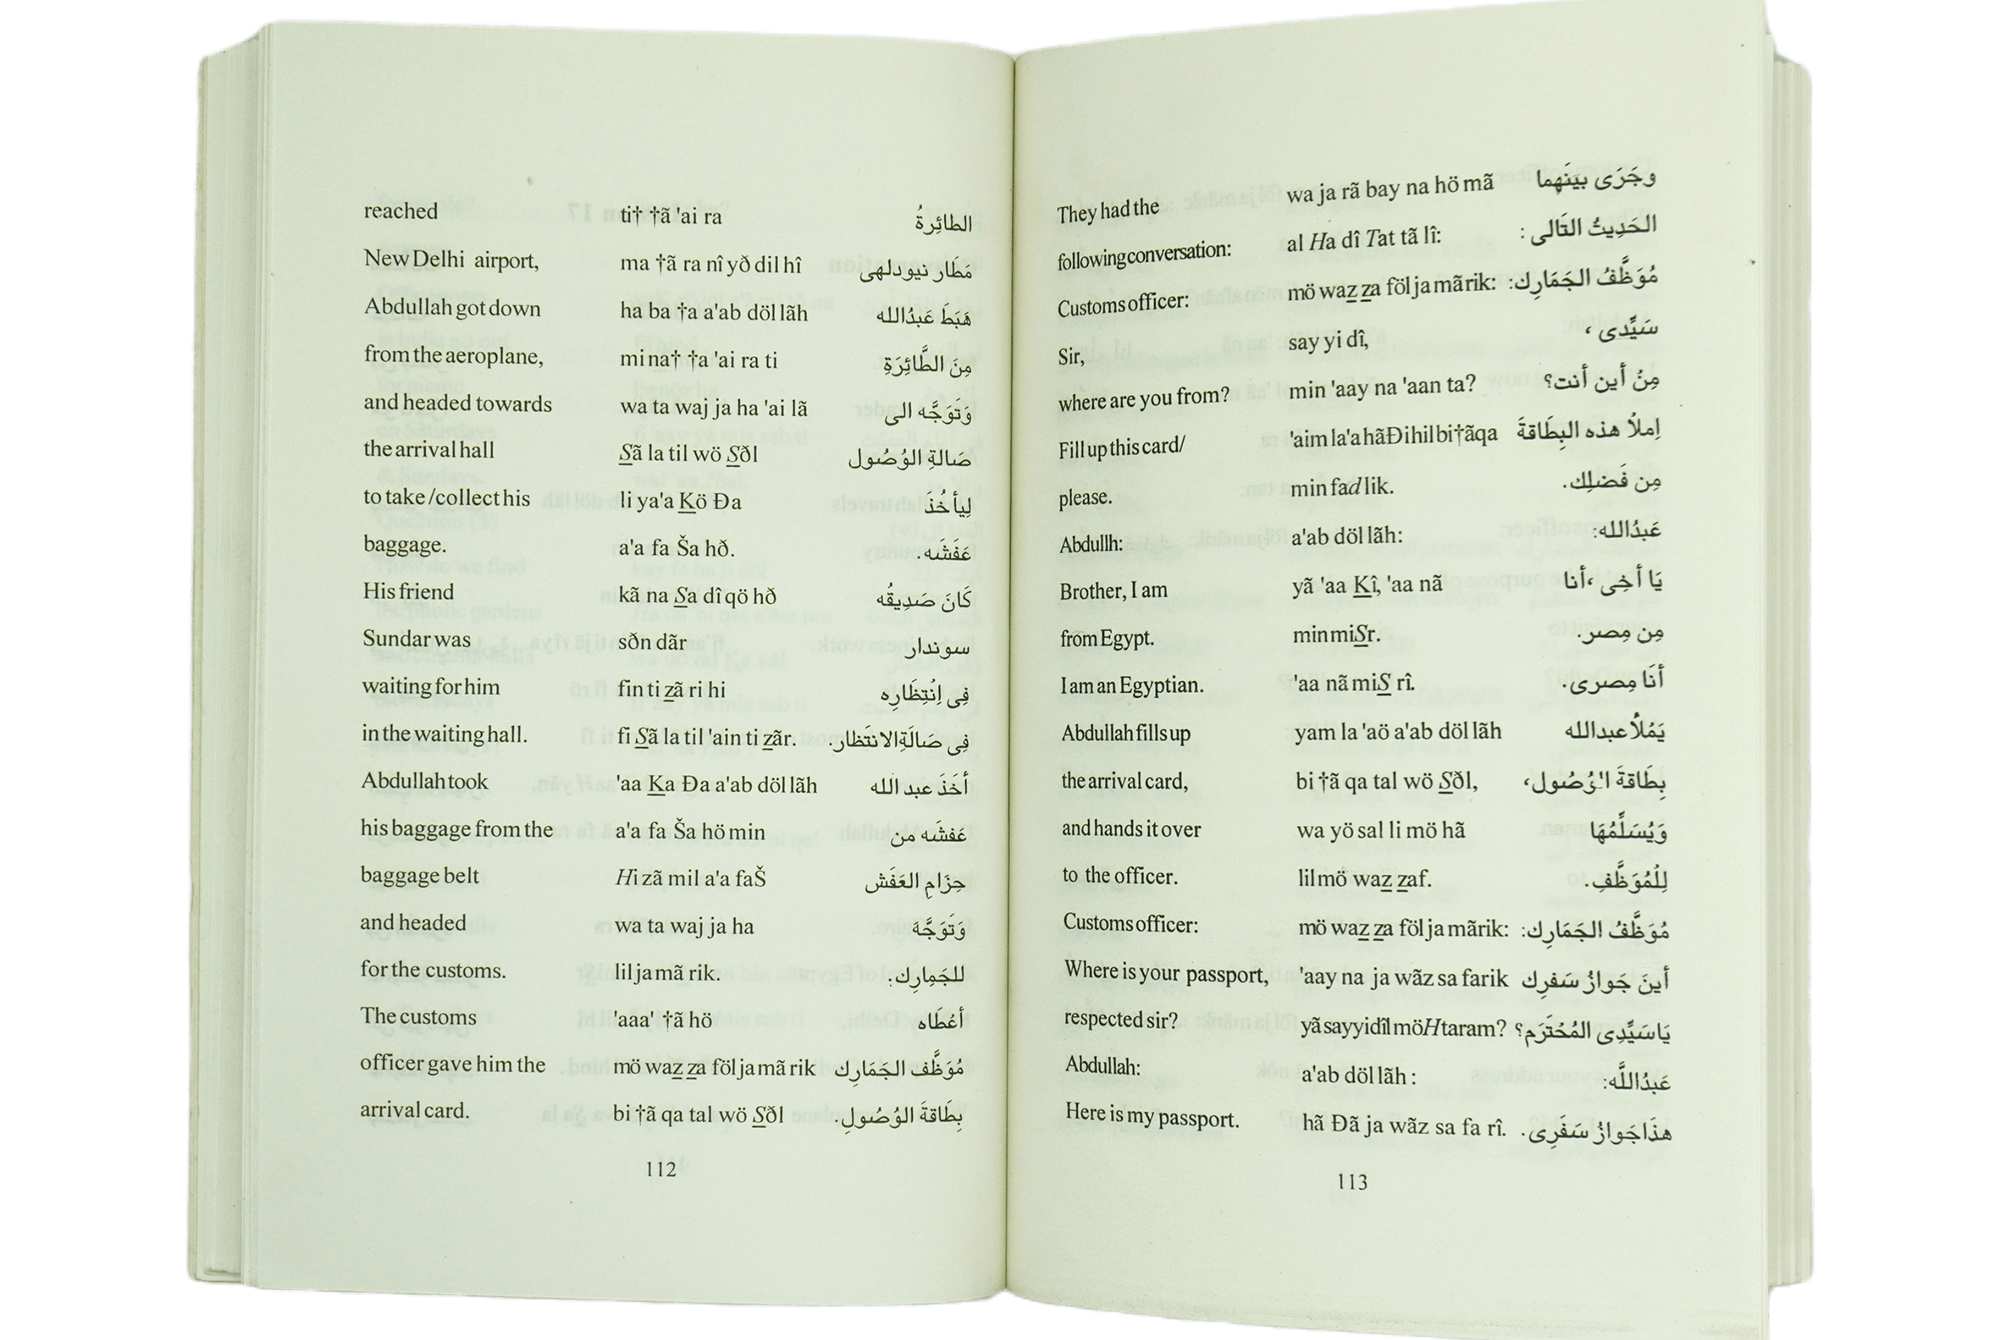 reached ti† †ã 'ai ra الطائِرةُ
New Delhi airport, ma †ã ra nî yð dil hî مَطَار نيودلهى
Abdullah got down ha ba †a a'ab döl lãh هَبَطَ عَبدُالله
from the aeroplane, mi na† †a 'ai ra ti مِنَ الطَّائِرَةِ
and headed towards wa ta waj ja ha 'ai lã وَتَوَجَّه الى
the arrival hall Sã la til wö Sðl صَالةِ الوُصُول
to take /collect his li ya'a Kö Ða لِيأخُذَ
baggage. a'a fa Ša hð. عَفَشَه.
His friend kã na Sa dî qö hð كَانَ صَدِيقُه
Sundar was sðn dãr سوندار
waiting for him fin ti zã ri hi فِى اِنْتِظَارِه
in the waiting hall. fi Sã la til 'ain ti zãr. فِى صَالَةِالانتَظار.
Abdullah took 'aa Ka Ða a'ab döl lãh أخَذَ عبد الله
his baggage from the a'a fa Ša hö min عَفشَه من
baggage belt Hi zã mil a'a faŠ حِزَامِ العَفَش
and headed wa ta waj ja ha وَتَوَجَّهَ
for the customs. lil ja mã rik. للجَمِارِك.
The customs 'aaa' †ã hö أعْطَاه
officer gave him the mö waz za föl ja mã rik مُوَظَّف الجَمَارِك
arrival card. bi †ã qa tal wö Sðl بِطَاقةَ الوُصُولِ.
112
They had the wa ja rã bay na hö mã وجَرَى بيَنَهِما
following conversation: al Ha dî Tat tã lî: الحَدِيثُ التَالى :
Customs officer: mö waz za föl ja mã rik: مُوَظَّفُ الجَمَارِك:
Sir, say yi dî, سَيِّدى ،
where are you from? min 'aay na 'aan ta? مِنْ أين أنت؟
Fill up this card/ 'aim la'a hã Ði hil bi †ãqa اِملأ هذه البِطَاقةَ
please. min fad lik. مِن فَضلِك.
Abdullh: a'ab döl lãh: عَبدُالله:
Brother, I am yã 'aa Kî, 'aa nã يَا أخِى ،أنا
from Egypt. min miSr. مِن مِصر.
I am an Egyptian. 'aa nã miS rî. أنَا مِصرى.
Abdullah fills up yam la 'aö a'ab döl lãh يَمْلأُ عبدالله
the arrival card, bi †ã qa tal wö Sðl, بِطَاقةَ الوُصُول،
and hands it over wa yö sal li mö hã وَيُسَلِّمُهَا
to the officer. lil mö waz zaf. لِلْمُوَظَّفِ.
Customs officer: mö waz za föl ja mãrik: مُوَظَّفُ الجَمَارِك:
Where is your passport, 'aay na ja wãz sa farik أينَ جَوازُ سَفرِك
respected sir? yã sayyidîl möHtaram? يَاسَيِّدِى المُحْتَرَم؟
Abdullah: a'ab döl lãh : عَبدُاللَّه:
Here is my passport. hã Ðã ja wãz sa fa rî. هذَاجَوازُ سَفَرِى.
113